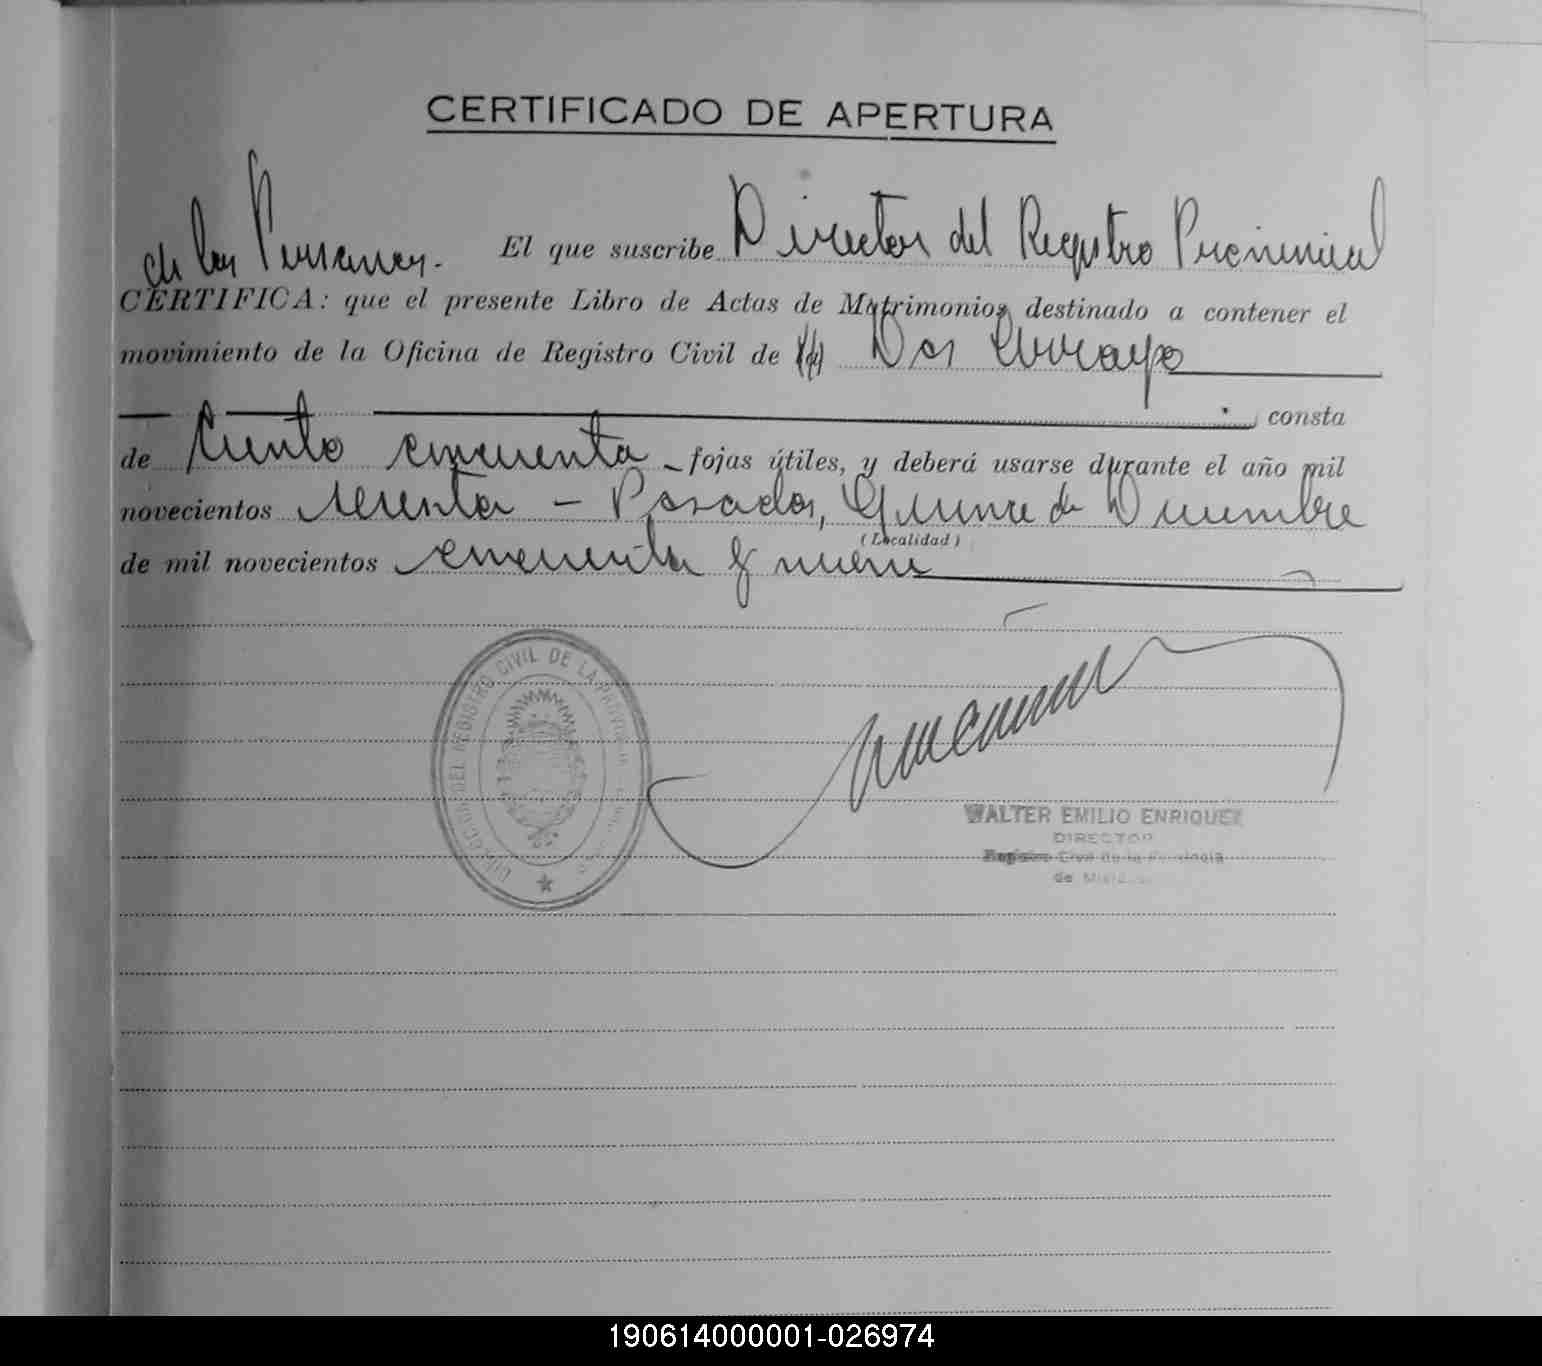 CERTIFICADO DE APERTURA
El que suscribe Director del Registro Provincial
de las Personas.
CERTIFICA: que el presente Libro de Actas de Matrimonios destinado a contener el
movimiento de la Oficina de Registro Civil de Dos Arroyos
consta
de Ciento cincuenta fojas útiles, y deberá usarse durante el año mil
novecientos sesenta - Posadas, Quince de Diciembre
(Localidad)
de mil novecientos cincuenta y nueve
DIRECCION DEL REGISTRO CIVIL DE LA PROVINCIA
WALTER EMILIO ENRIQUEZ
DIRECTOR
Registro Civil de la Provincia
de Misiones
190614000001-026974